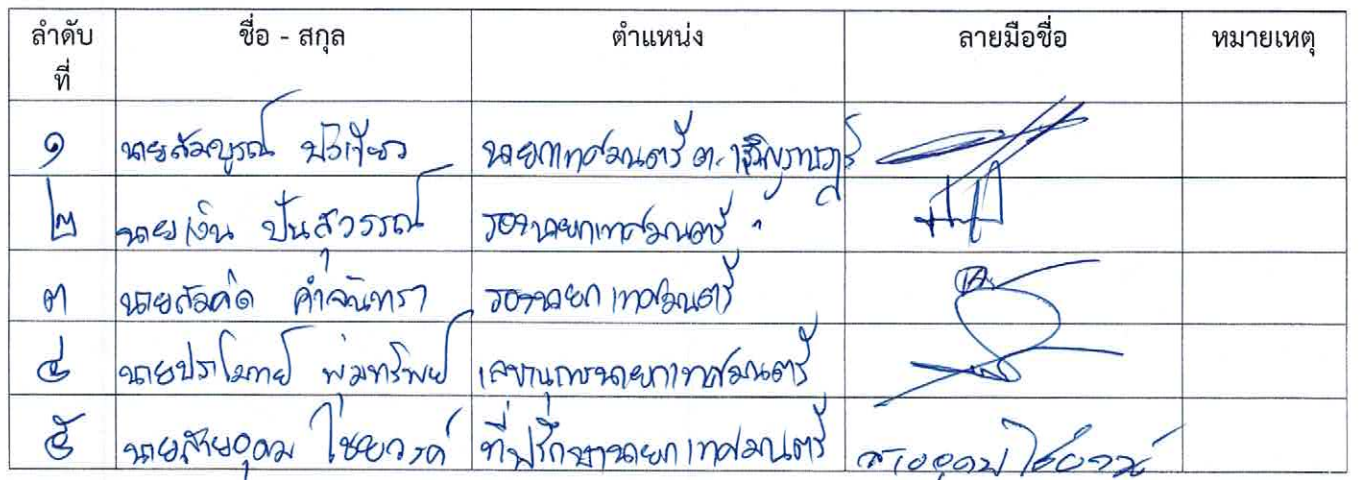 ลำดับที่ ชื่อ - สกุล ตำแหน่ง ลายมือชื่อ หมายเหตุ
๑ นายสมบูรณ์ นายกเทศมนตรี
๒ นายเงิน ปันสุวรรณ์ รองนายกเทศมนตรี
๓ นายสมคิด คำจันทรา รองนายกเทศมนตรี
๔ นายปราโมทย์ พุ่มทรัพย์ เลขานุการนายกเทศมนตรี
๕ นายสายอุดม ไชยวงค์ ที่ปรึกษานายกเทศมนตรี สายอุดม ไชยวงค์